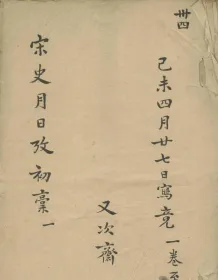 卅四
己未四月廿七日寫竟 一卷至
又次齋
宋史月日攷初稾 一